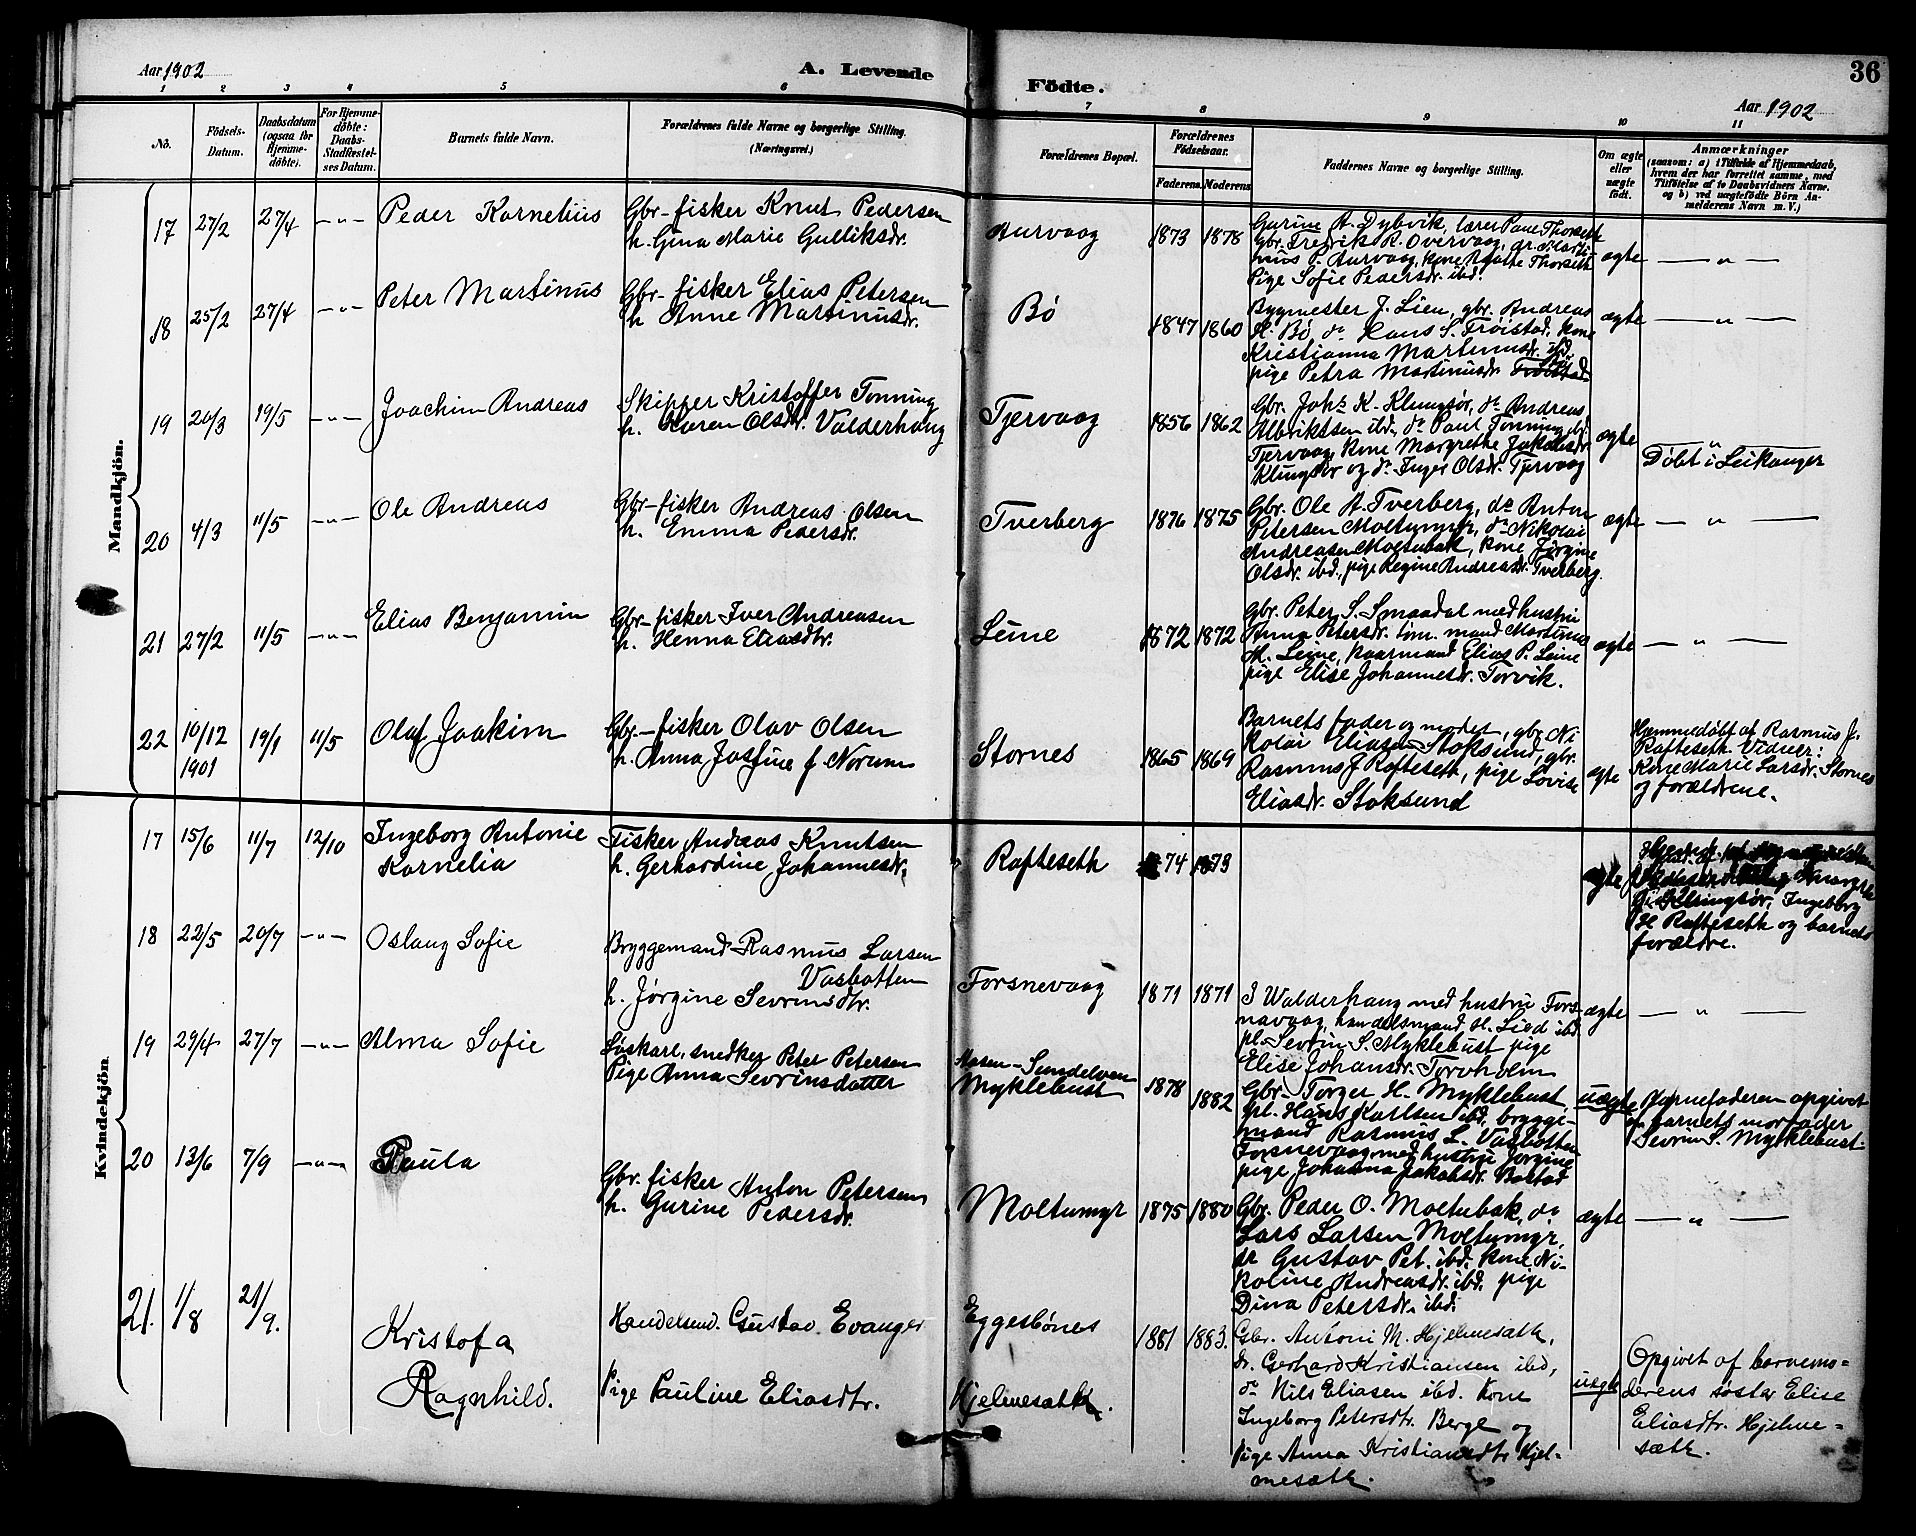 Aar 1902
A. Levende
Födte.
36
Aar 1902
1 2 3 4 5 6 7 8 9 10 11
No.
Födsels-
Datum.
Daabsdatum
(ogsaa for
Hjemme-
döbte).
For Hjemme-
döbte:
Daabs-
Stadfæstel-
ses Datum.
Barnets fulde Navn.
Forældrenes fulde Navne og borgerlige Stilling.
(Næringsvei.)
Forældrenes Bopæl.
Forældrenes
Födselsaar.
Faderens.
Moderens
Faddernes Navne og borgerlige Stilling.
Om ægte
eller
uægte
födt.
Anmærkninger
(saasom: a) i Tilfælde af Hjemmedaab,
hvem der har forrettet samme, med
Tilföielse af to Daabsvidners Navne,
og b) ved uægtefödte Börn An-
melderens Navn m. V.)
Mandkjön.
17 27/2 27/4 -"- Peder Kornelius
Gbr-fisker Knut Pedersen
h. Gina Marie Gulliksdr.
Aurvaag 1873 1878
Gurine A. Dybvik, lærer Paul Thorseth
Gbr. Fredrik R. Overvaag, dr. Marti-
nus P. Aurvaag, kone Agathe Thorseth
Pige Sofie Pedersdr. ibd.
ægte — " —
18 25/2 27/4 -"- Peter Martinus
Gbr-fisker Elias Petersen
h Anne Martinusdr.
Bø 1847 1860
Bygmester J. Lien, gbr. Andreas
M. Bø do Hans S. Trøistad, kone
Kristianna Martinusdr. ibd
pige Petra Martinusdr Bø
ægte — " —
19 20/3 19/5 -"- Joachim Andreas
Skipper Kristoffer Tonning
h. Karen Olsdt. Valderhaug
Tjervaag 1856 1862
Gbr. Johs K. Klungsør, do Andreas
Albriktsen ibd, do Paul Tonning, ibd.
Tjervaag, kone Margrethe Jakobsdr
Klungsør og do Inger Olsdr. Tjervaag
ægte — " —
Døbt i Leikanger
20 4/3 11/5 -"- Ole Andreas
Gbr-fisker Andreas Olsen
h. Emma Pedersdr.
Tverberg 1876 1875
Gbr. Ole A. Tverberg, do Anton
Petersen Moltumyr, do Nikolai
Andreasen Moltubak, kone Jørgine
Olsdr. ibd., pige Regine Andreasdr. Tverberg.
ægte — " —
21 27/2 11/5 -"- Elias Benjamin
Gbr-fisker Iver Andreasen
h. Henna Eliasdtr.
Leine 1872 1872
Gbr. Peter S. Smaadal med hustru
Anna Petersdr. tøm. mand Martinus
M. Leine, kaarmand Elias P. Leine
pige Elise Johannesdr. Torvik.
ægte — " —
22 10/12 1901 19/1 11/5 Olaf Joakim
Gbr-fisker Olav Olsen
h. Anna Josefine f. Norum
Stornes 1865 1869
Barnets fader og moder, gbr. Ni
kolai Eliasen Stoksund, gbr.
Rasmus J. Rafteseth, pige Lovise
Eliasdr. Stoksund
ægte
Hjemmedøbt af Rasmus J.
Rafteseth. Vidner:
Kone Marie Larsdr. Stornes
og forældrene.
Kvindekjön
17 15/6 11/7 12/10 Ingeborg Antonie
Kornelia
Fisker Andreas Knutsen
h. Gerhardine Johannesdr.
Rafteseth 74 1873
ægte
Klungsør, Ingeborg
H Rafteseth og barnets
forældre.
18 22/5 20/7 -"- Oslaug Sofie
Bryggemand Rasmus Larsen
Vasbotten
h. Jørgine Sevrinsdtr.
Forsnevaag 1871 1871
J Walderhaug med hustru Fors-
navaag, handelsmand H. Lied ibd.
pl. Sevrin S. Myklebust pige
Elise Johansdr. Torvholm
ægte — " —
19 29/4 27/7 -"- Alma Sofie
Løskarl, snedker Peter Petersen
Pige Anna Sevrinsdatter
Aasen-Søndeloven
Myklebust 1878 1882
Gbr. Torger H. Myklebust,
pl. Hans Karlsen ibd, brygge-
mand Rasmus L. Vasbotten
Forsnevaag med hustru Jørgine
pige Johanna Jakobsdr. Bolstad
uægte
Barnefaderen opgivet
af barnets morfader
Sevrin S. Myklebust.
20 13/6 7/9 -"- Paula
Gbr. fisker Anton Petersen
h. Gurine Pedersdr.
Moltumyr 1875 1880
Gbr. Peder O. Moltubak, do
Lars Larsen Moltumyr,
do Gustav Pet. ibd. kone Ni-
koline Andreasdr. ibd. pige
Dina Petersdr. ibd.
ægte — " —
21. 1/8 21/9. Kristofa
Ragnhild.
Handelsmd. Gustav Evanger
Pige Pauline Eliasdtr.
Eggesbönes
Hjelmesæth. 1881 1883.
Gbr. Antoni M. Hjelmesæth,
do. Gerhard Kristiansen ibd,
do Nils Eliasen ibd. Kone
Ingeborg Petersdtr. Berge og
Pige Anna Kristiansdtr Hjel-
mesæth.
uægte
Opgivet af barnemo-
derens søster Elise
Eliasdtr. Hjelme-
sæth.